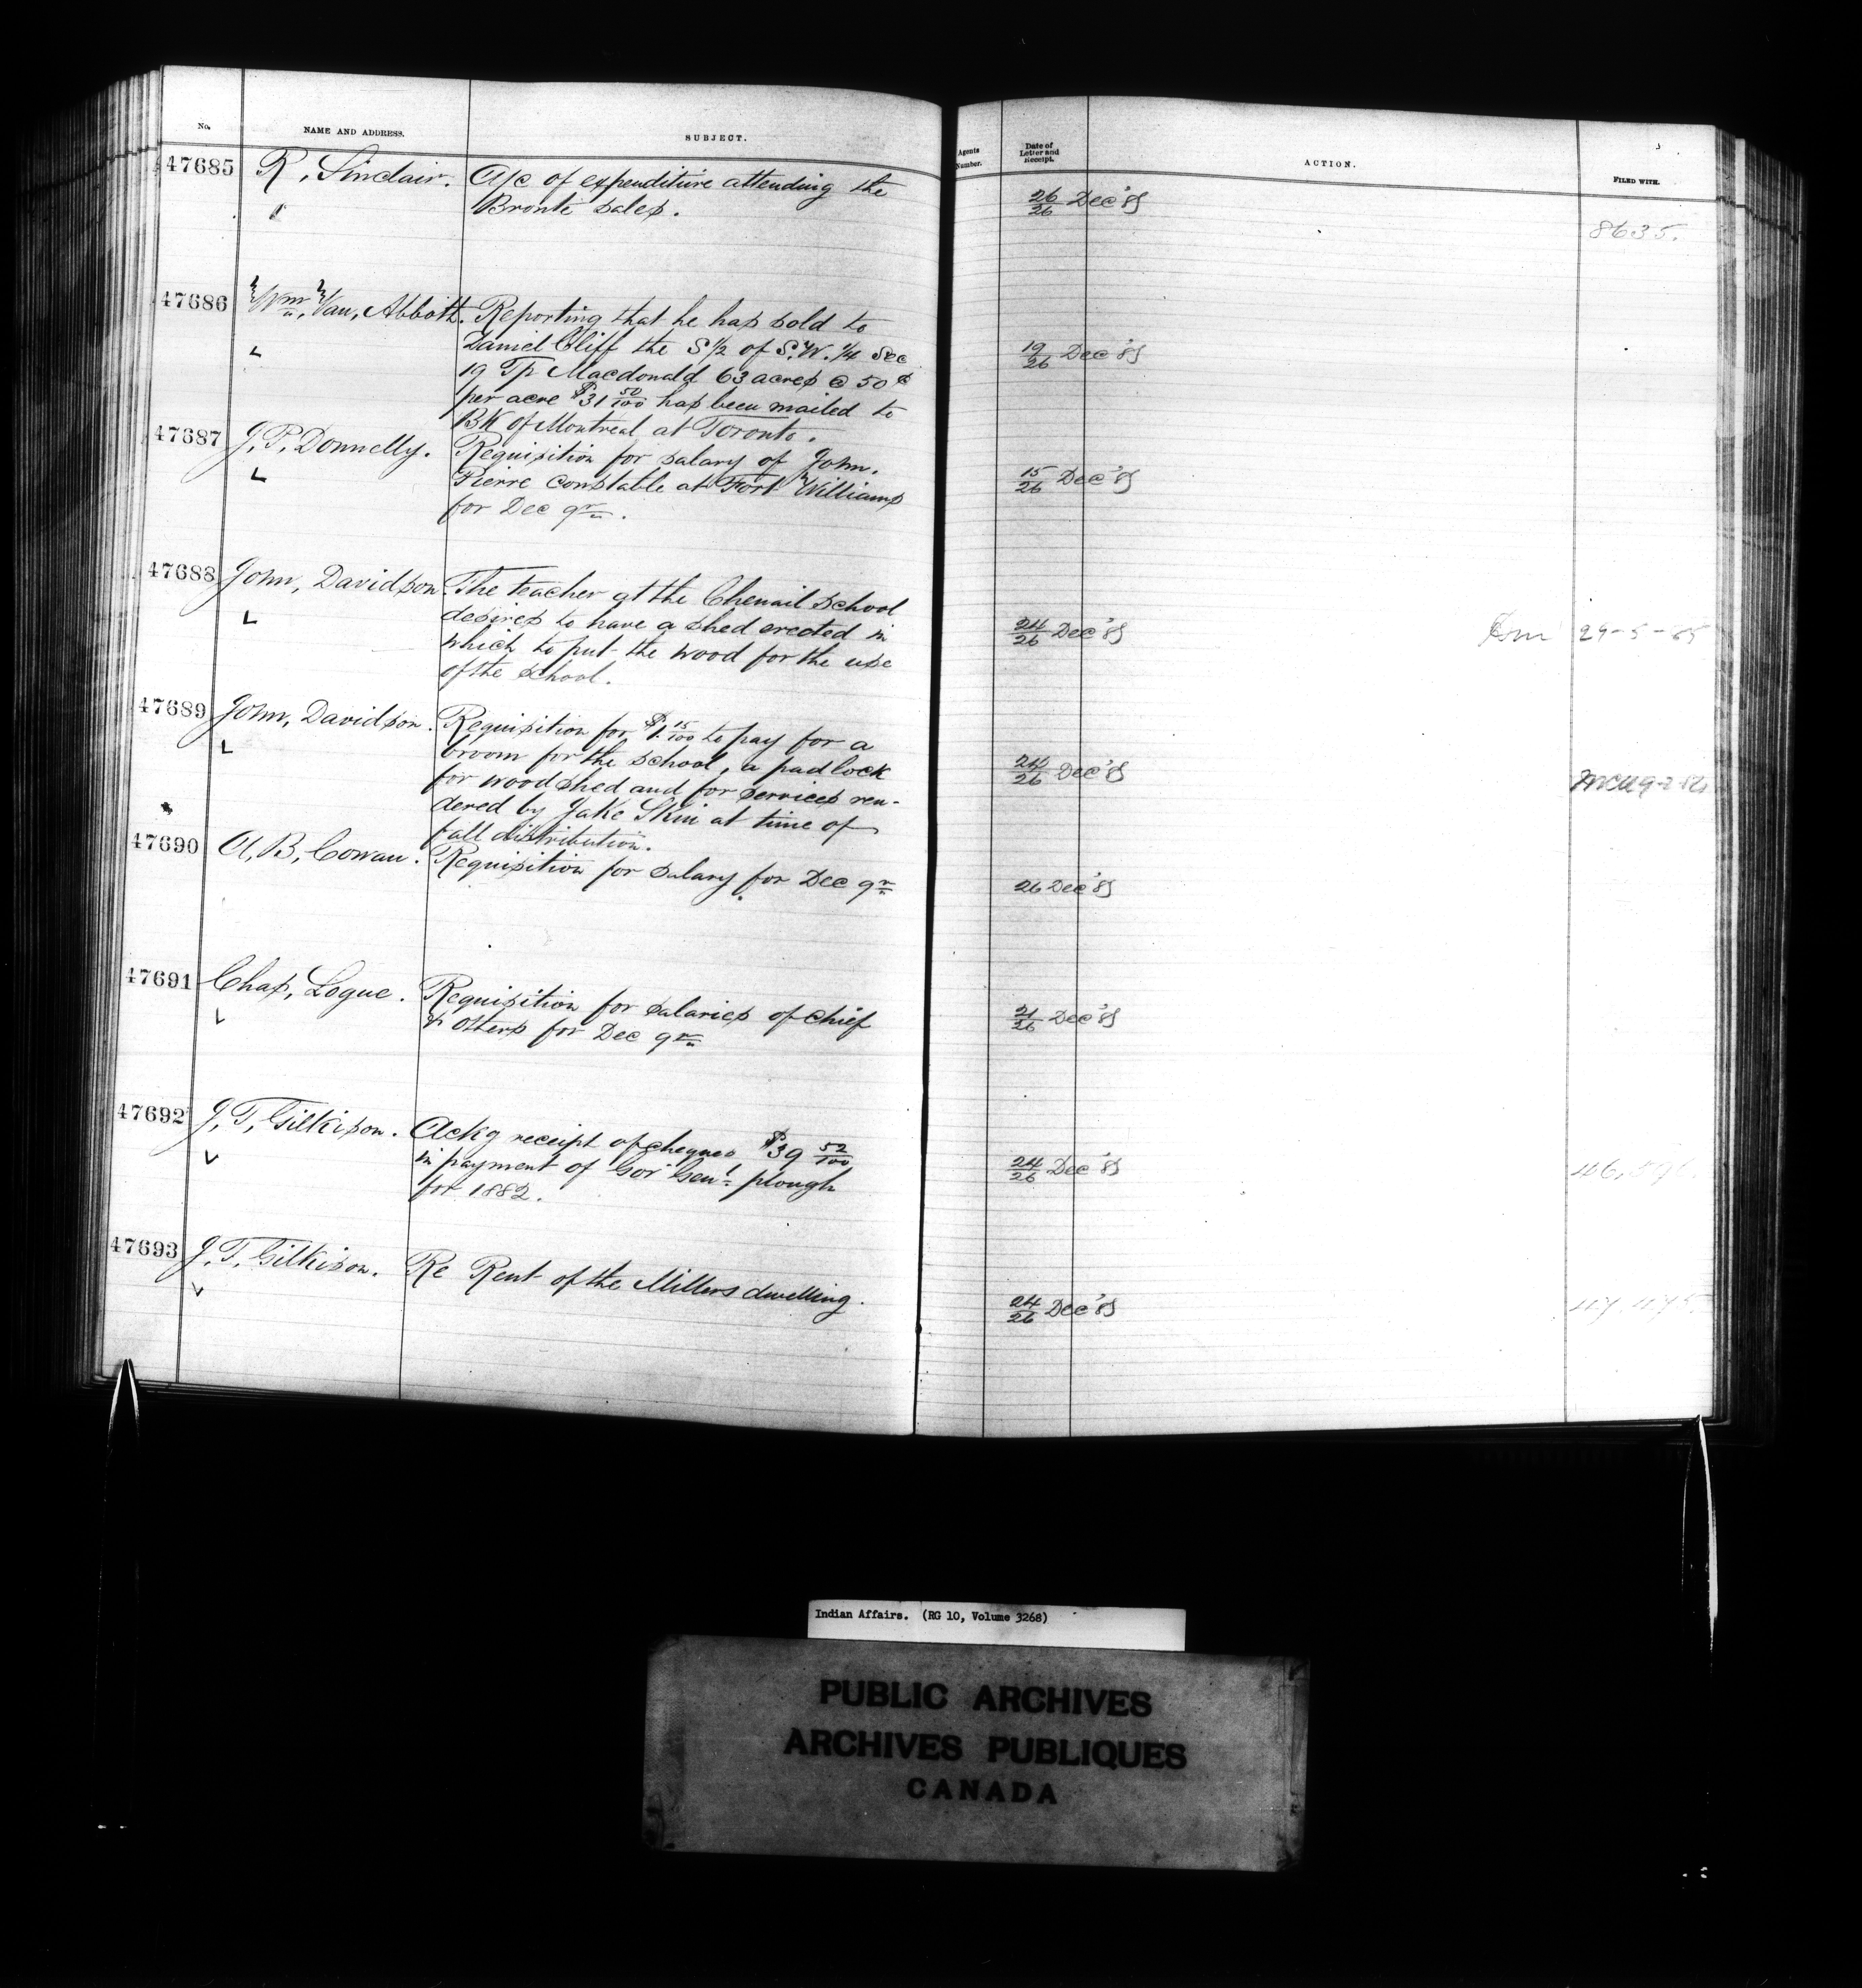 No.
NAME AND ADDRESS.
SUBJECT.
Agents Number.
Date of Letter and Receipt.
ACTION.
FILED WITH.
47685
R, Sinclair.
A/c of expenditure attending the
Bronte sales.
26/26 Dec '85
8635.
47686
Wm, Van, Abbott.
Reporting that he has sold to
Daniel Cliff the S 1/2 of S.W. 1/4 Sec
19 Tp Macdonald 63 acres @ 50 ¢
per acre $31 50/100 has been mailed to
BK of Montreal at Toronto.
19/26 Dec '85
47687
J, P, Donnelly.
Requisition for salary of John.
Pierre constable at Fort Williams
for Dec qr.
15/26 Dec '85
47688
John, Davidson
The teacher at the Chenail school
desires to have a shed erected in
which to put the wood for the use
of the school.
24/26 Dec '85
29-5-85
47689
John, Davidson.
Requisition for $1. 15/100 to pay for a
broom for the school, a padlock
for woodshed and for services ren-
dered by Jake Skin at time of
fall distribution.
24/26 Dec '85
47690
A, B, Cowan.
Requisition for salary for Dec qr
26 Dec '85
47691
Chas, Logue.
Requisition for salaries of chief
& others for Dec qr
21/26 Dec '85
47692
J, T, Gilkison.
Ackg receipt of cheques $39 52/100
in payment of Gov Genl plough
for 1882.
24/26 Dec '85
47693
J, T, Gilkison.
Re Rent of the Millers dwelling.
24/26 Dec '85
Indian Affairs. (RG 10, Volume 3268)
PUBLIC ARCHIVES
ARCHIVES PUBLIQUES
CANADA